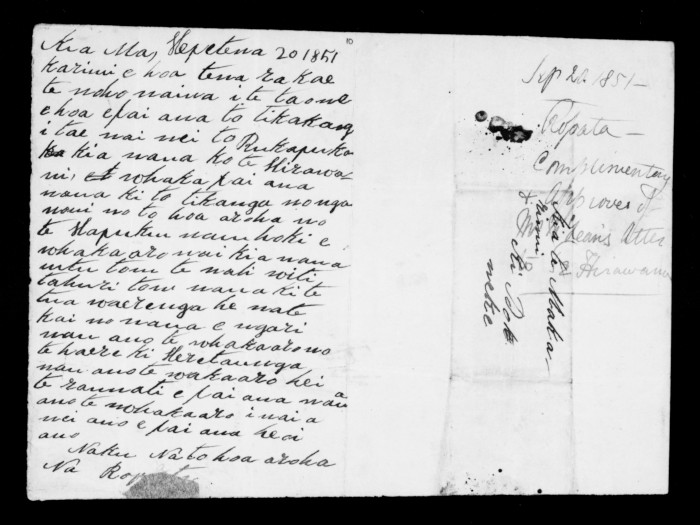 Kia Ma, Hepetema 20 1851
karini e hoa tena ra koe
te noho naiwa i te taone
e hoa e pai ana to tikakang
i tae nai nei to Pukapuka
ka kia nana ko te Hirawa-
ni, whaka pai ana
nana ki to tikanga no nga
noui no to hoa aroha no
te Hapuku nau hoki e
whaka aro nai kia nana
te nati witi
tahuri tonu nana ki te
tua waerenga he nate
kai no nana e ngari
nau ano te whakaaro no
te haere ki Heretaunga
nau ano te wakaaro hei
te raunati e pai ana nau
ano te whakaaro i nai a
nei ano e pai ana heoi
ano
Naku Na to hoa aroha
Na
10
Sep 20. 1851 -
Ropata -
Complimentary
approves of
McLean's letter
Hirawanu
Kia te Maka-
rini
Ki Poti
neke